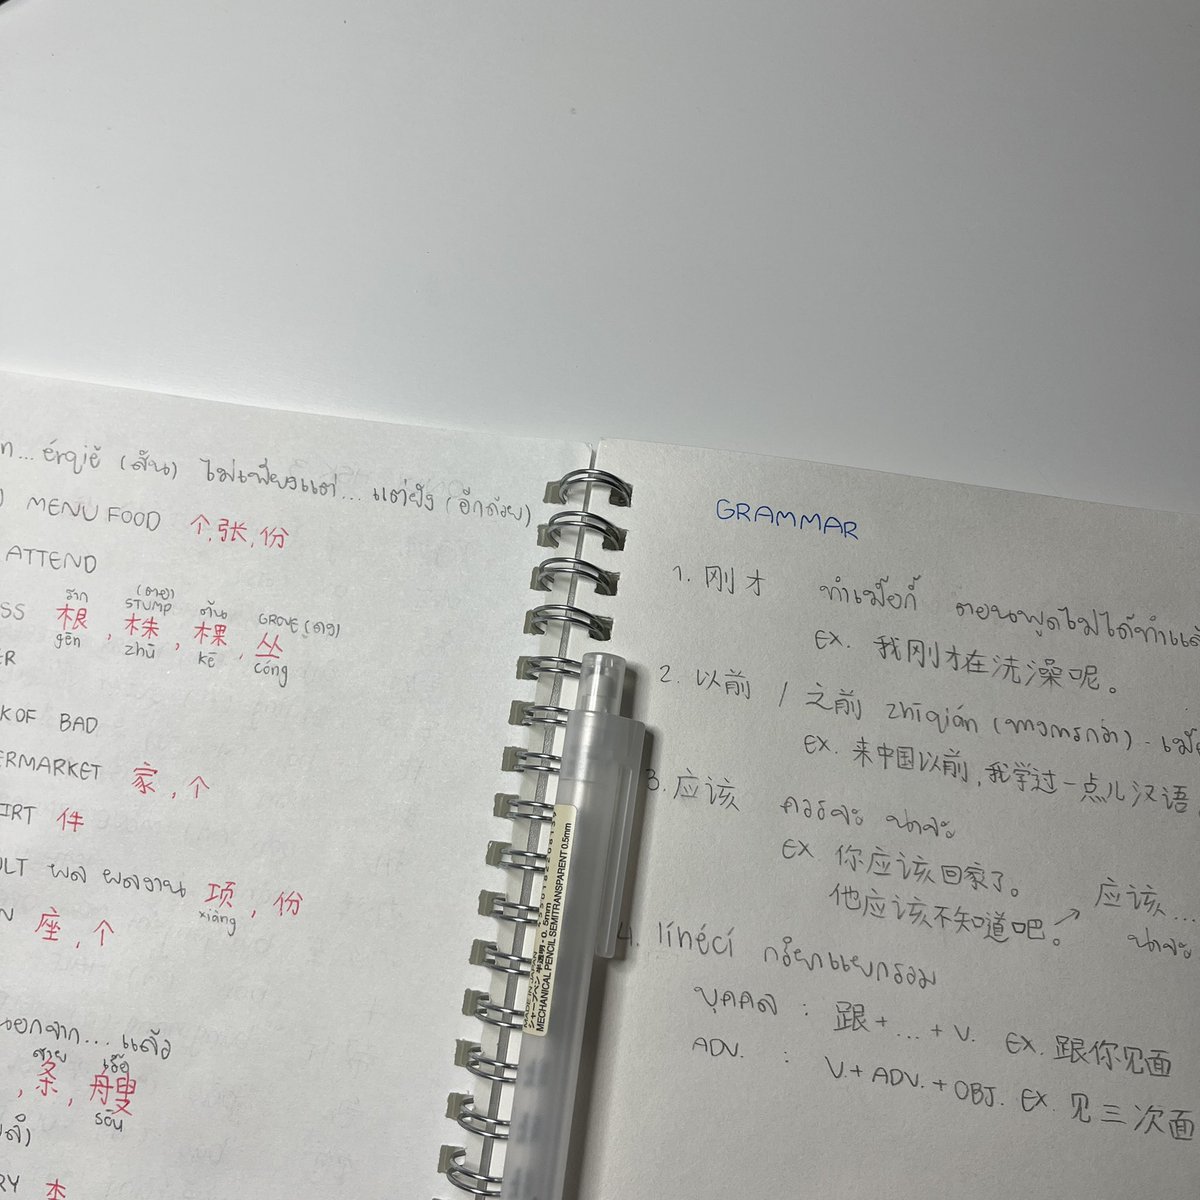 érqiě (สั้น) ไม่เพียงแต่... แต่ยัง (อีกด้วย)
MENU FOOD 个,张,份
ATTEND
ราก (ตอ) ต้น
STUMP GROVE (ดง)
根, 株, 棵, 丛
gēn zhū kē cóng
BAD
家, 个
件
ผล ผลงาน 项, 份
xiàng
座, 个
นอกจาก... แล้ว
สาย เรือ
, 条, 艘
sōu
本
GRAMMAR
1. 刚才 ทำเมื่อกี้ ตอนพูดไม่ได้ทำแล้ว
EX. 我刚才在洗澡呢。
2. 以前 / 之前 zhīqián (ทางการกว่า)
EX. 来中国以前,我学过一点儿汉语
3. 应该 ควรจะ น่าจะ
EX 你应该回家了。
他应该不知道吧。 ↗ 应该...
น่าจะ
4. líhécí กริยาแยกรวม
บุคคล : 跟+...+V. EX. 跟你见面
ADV. : V.+ADV.+OBJ. EX. 见三次面
MADE IN JAPAN
シャープペン 半透明・0.5mm
MECHANICAL PENCIL SEMITRANSPARENT 0.5mm